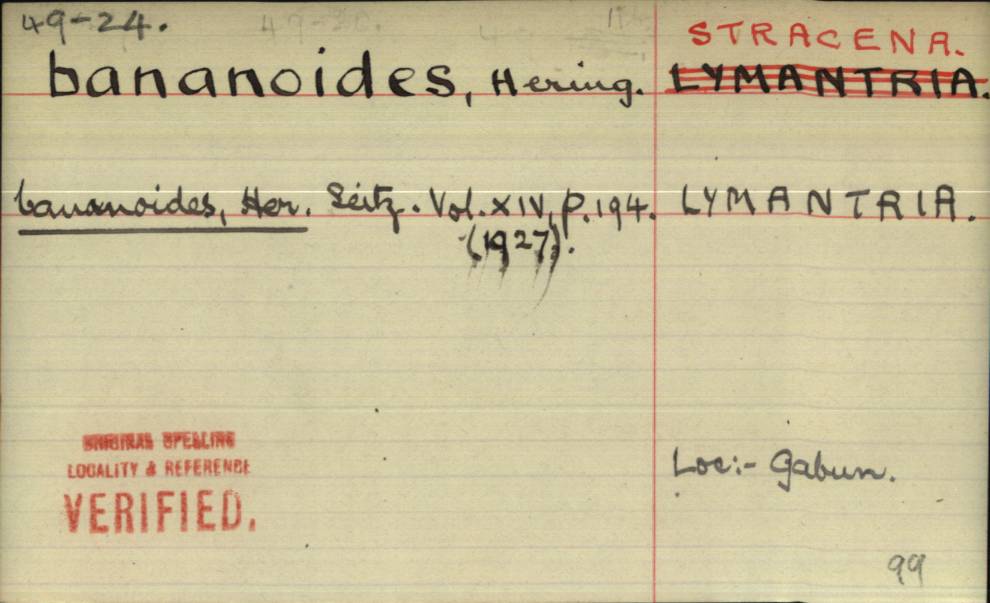 49-24.
STRACENA.
bananoides, Hering. LYMANTRIA.
bananoides, Her. Seitz. Vol. XIV, p. 194. LYMANTRIA.
(1927).
ORIGINAL SPELLING
LOCALITY & REFERENCE
VERIFIED.
Loc:- Gabun.
99